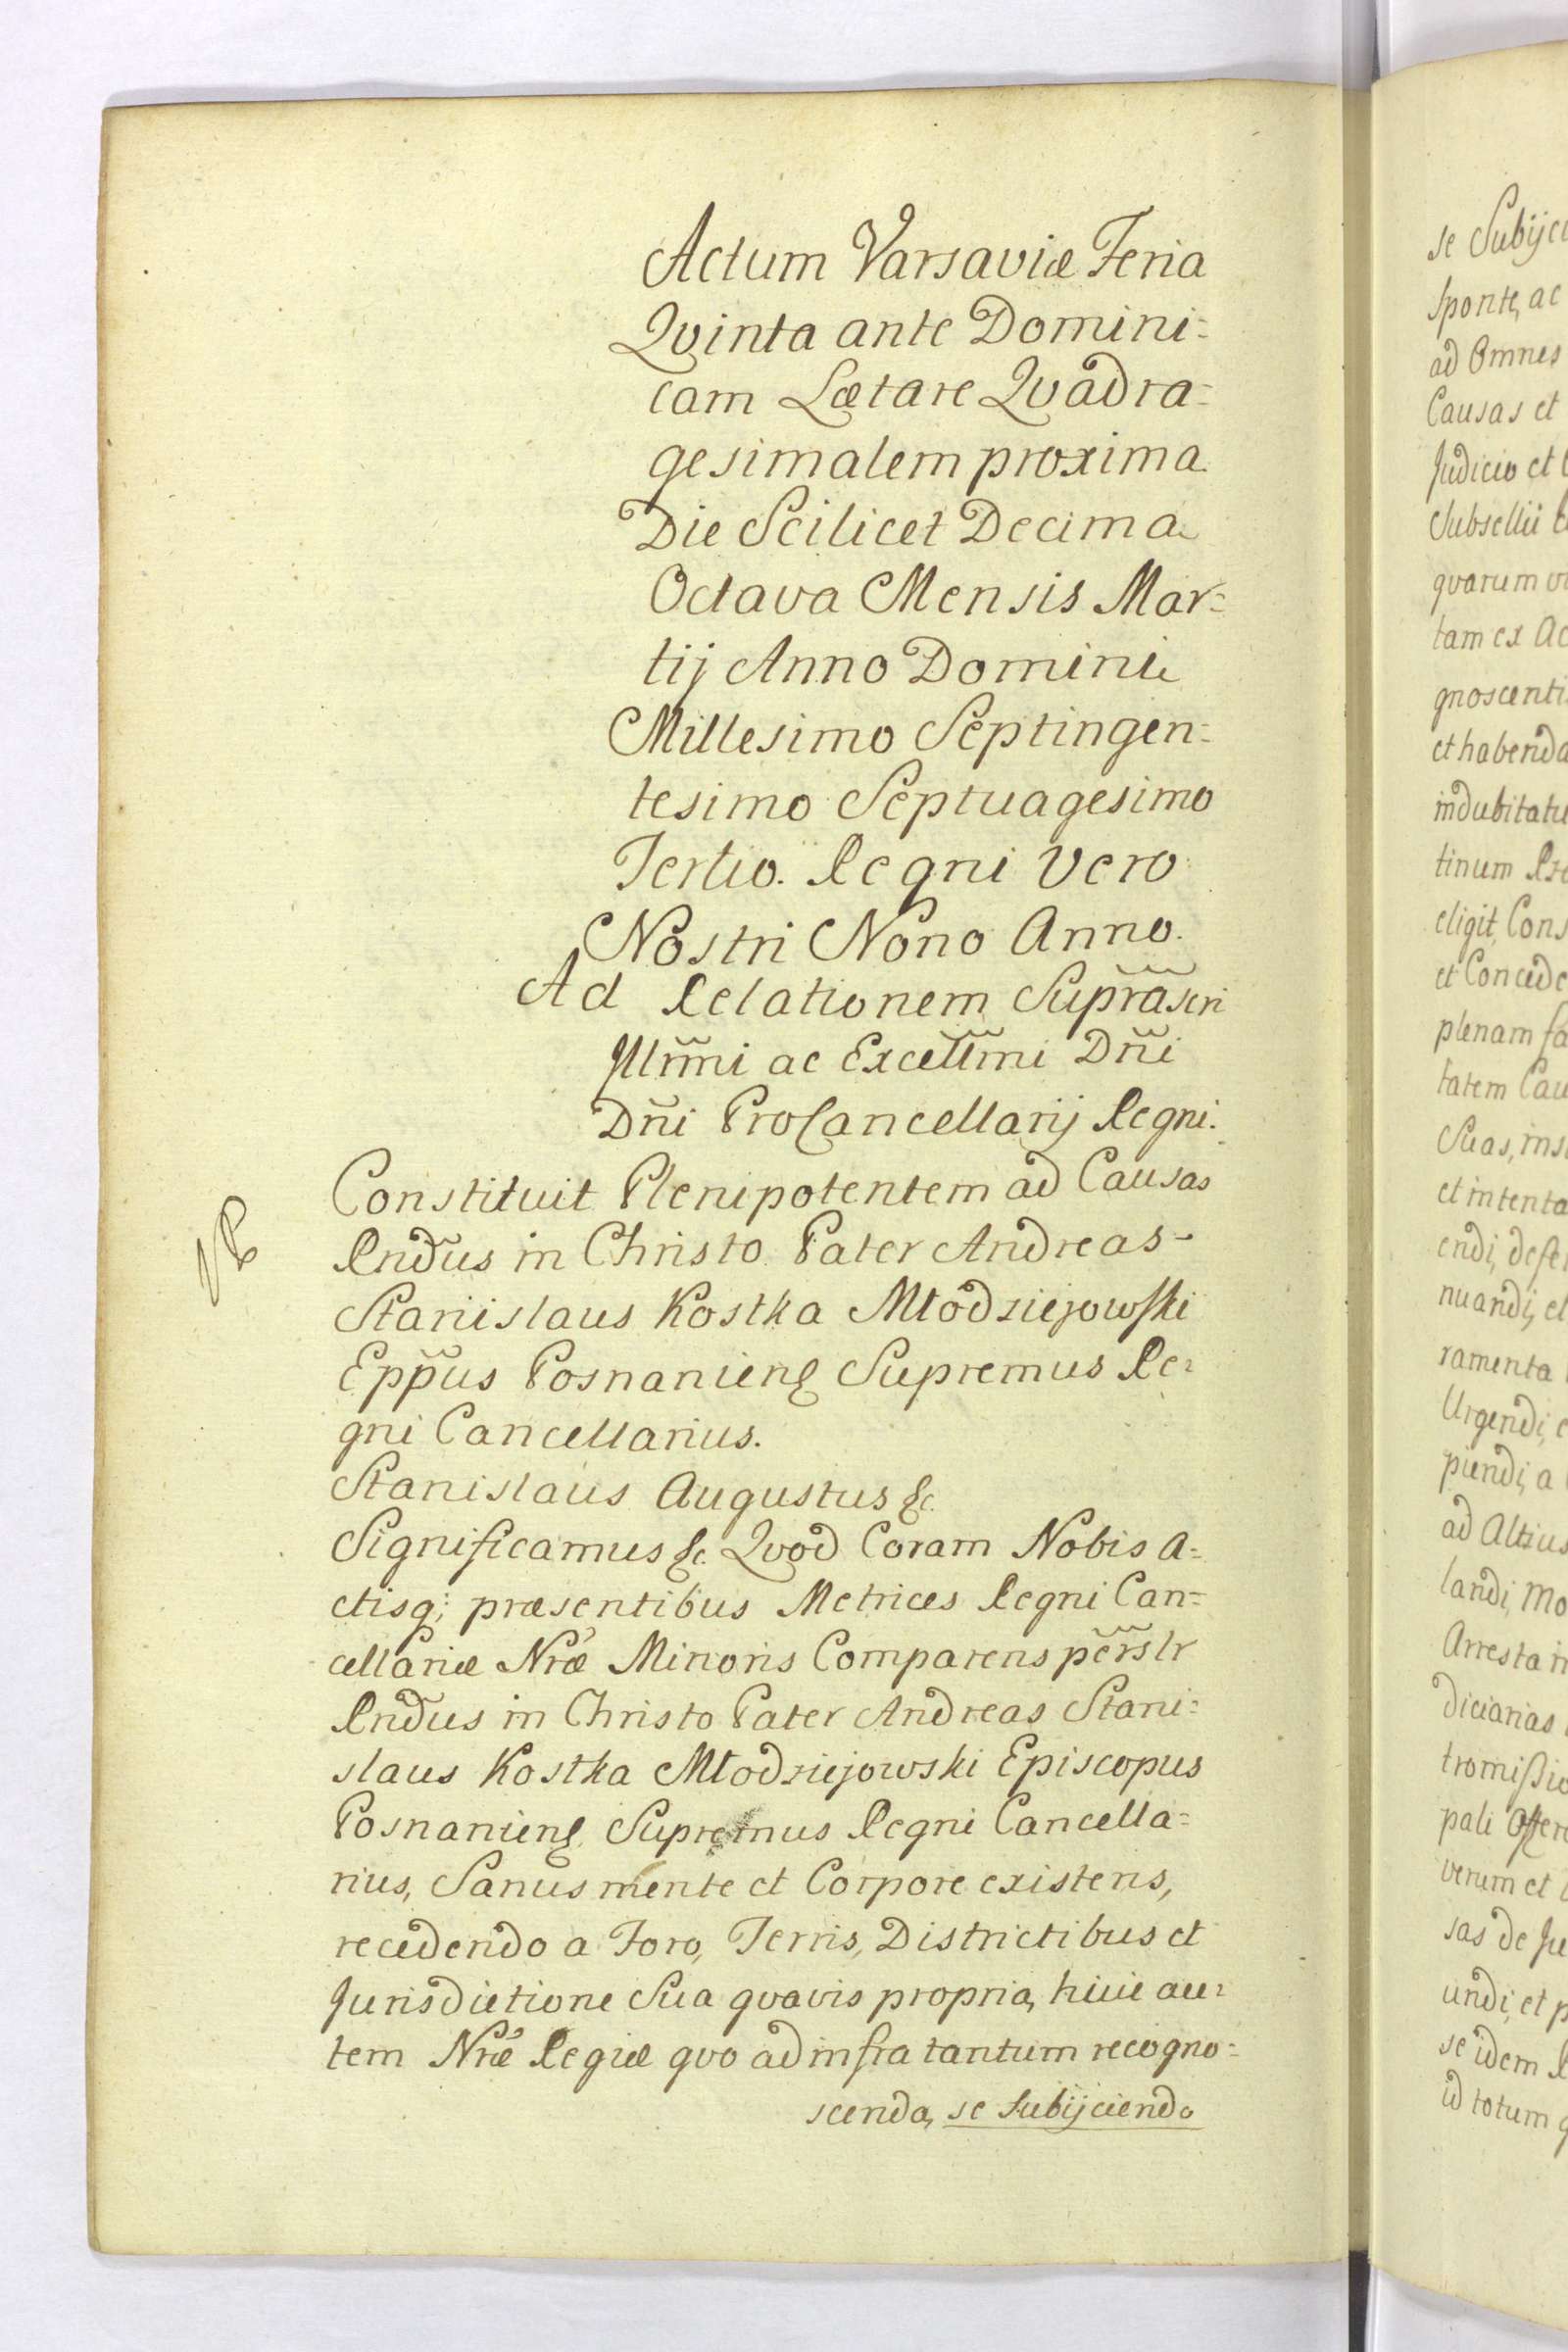 Actum Varsaviæ Feria
Qvinta ante Domini=
cam Lætare Qvadra=
gesimalem proxima
Die Scilicet Decima
Octava Mensis Mar=
tij Anno Domini
Millesimo Septingen=
tesimo Septuagesimo
Tertio. Regni Vero
Nostri Nono Anno.
Ad Relationem Supr̃ascri
Jllm̃i ac Excellm̃i Dn̄i
Dn̄i ProCancellarij Regni.
Constituit Plenipotentem ad Causas
Rnd̃us in Christo Pater Andreas
Stanislaus Kostka Młodziejowski
Epp̃us Posnanieñs Supremus Re=
gni Cancellarius.
Stanislaus Augustus &c.
Significamus &c. Qvod Coram Nobis A=
ctisq; præsentibus Metrices Regni Can=
cellariæ Nræ Minoris Comparens per̃slr
Rnd̃us in Christo Pater Andreas Stani=
slaus Kostka Młodziejowski Episcopus
Posnanieñs Supremus Regni Cancella=
rius, Sanus mente et Corpore existens,
recedendo a Foro, Terris, Districtibus et
Jurisdictione Sua qvavis propria, huic au=
tem Nræ Regiæ qvo ad infra tantum recogno=
scenda, se Subijciendo
se Subijci
sponte, ac
ad Omnes
Causas et
Judicio et
Subsellii
qvarum
tam ex Ac
gnoscenti
et habenda
indubitatu
tinum
eligit, Cons
et Concede
plenam fa
tatem Cau
Suas, ins
et intenta
endi, defe
nuandi, et
ramenta
Urgendi, e
piendi, a
ad Altius
landi, Mo
Arresta in
diciarias
tromissio
pali Offere
verum et
sas de Ju
undi, et p
se idem R
id totum q